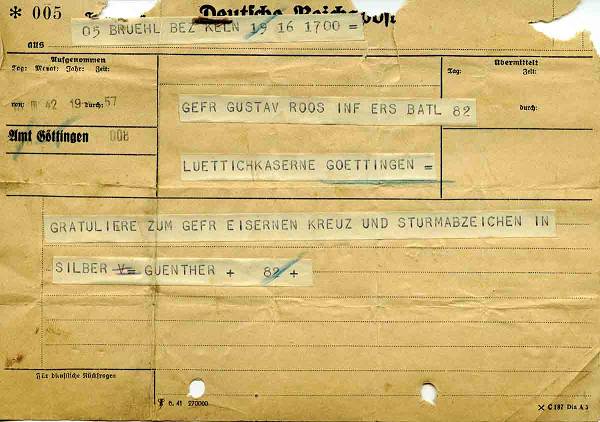 * 005
Deutsche Reichspost
05 BRUEHL BEZ KELN 19 16 1700 =
aus
Aufgenommen
Tag: Monat: Jahr: Zeit:
Übermittelt
Tag: Zeit:
von: m 42 19 durch: 57
durch:
GEFR GUSTAV ROOS INF ERS BATL 82
Amt Göttingen 008
LUETTICHKASERNE GOETTINGEN =
GRATULIERE ZUM GEFR EISERNEN KREUZ UND STURMABZEICHEN IN
SILBER V= GUENTHER + 82 +
Für dienstliche Rückfragen
6. 41 270000
× C 187 Din A 5